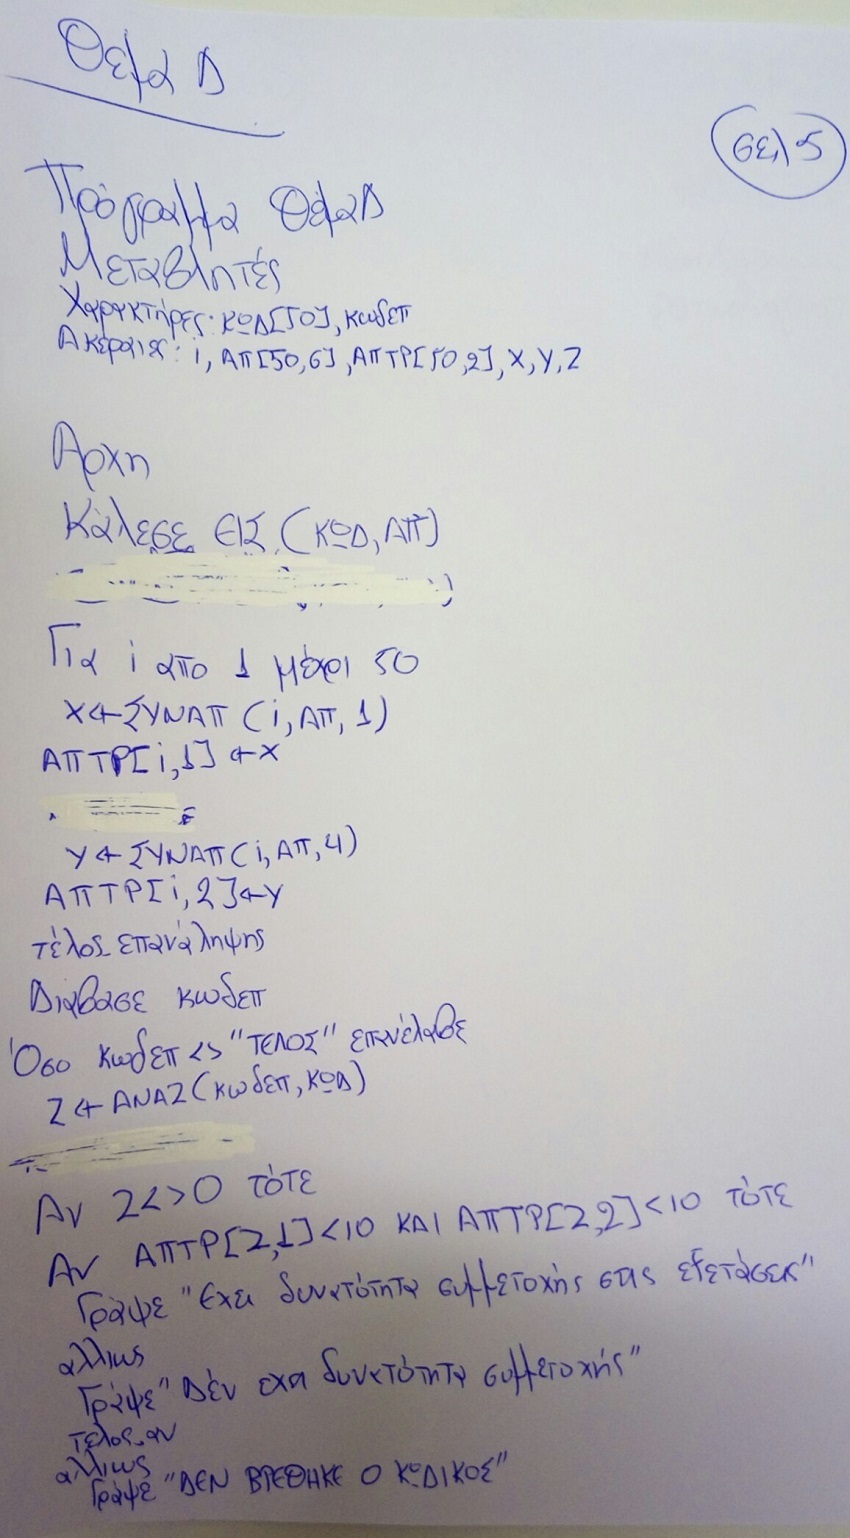 Θέμα Δ
σελ 5
Πρόγραμμα ΘέμαΔ
Μεταβλητές
Χαρακτήρες: ΚΩΔ[50], κωδεπ
Ακέραιες: i, ΑΠ[50,6], ΑΠΤΡ[50,2], Χ, Υ, Ζ
Αρχη
Κάλεσε ΕΙΣ (ΚΩΔ, ΑΠ)
Για i απο 1 μέχρι 50
Χ← ΣΥΝΑΠ (i, ΑΠ, 1)
ΑΠΤΡ[i,1] ←Χ
Υ← ΣΥΝΑΠ(i, ΑΠ, 4)
ΑΠΤΡ[i,2]←Υ
τέλος_επανάληψης
Διάβασε κωδεπ
Όσο κωδεπ <> "ΤΕΛΟΣ" επανέλαβε
Ζ← ΑΝΑΖ(κωδεπ, ΚΩΔ)
Αν Ζ<>0 τότε
Αν ΑΠΤΡ[Ζ,1]<10 ΚΑΙ ΑΠΤΡ[Ζ,2]<10 τότε
Γράψε "Εχει δυνατότητα συμμετοχής στις εξετάσεις"
αλλιως
Γράψε "Δέν εχει δυνατότητα συμμετοχής"
τελος_αν
αλλιως
Γράψε "ΔΕΝ ΒΡΕΘΗΚΕ Ο ΚΩΔΙΚΟΣ"